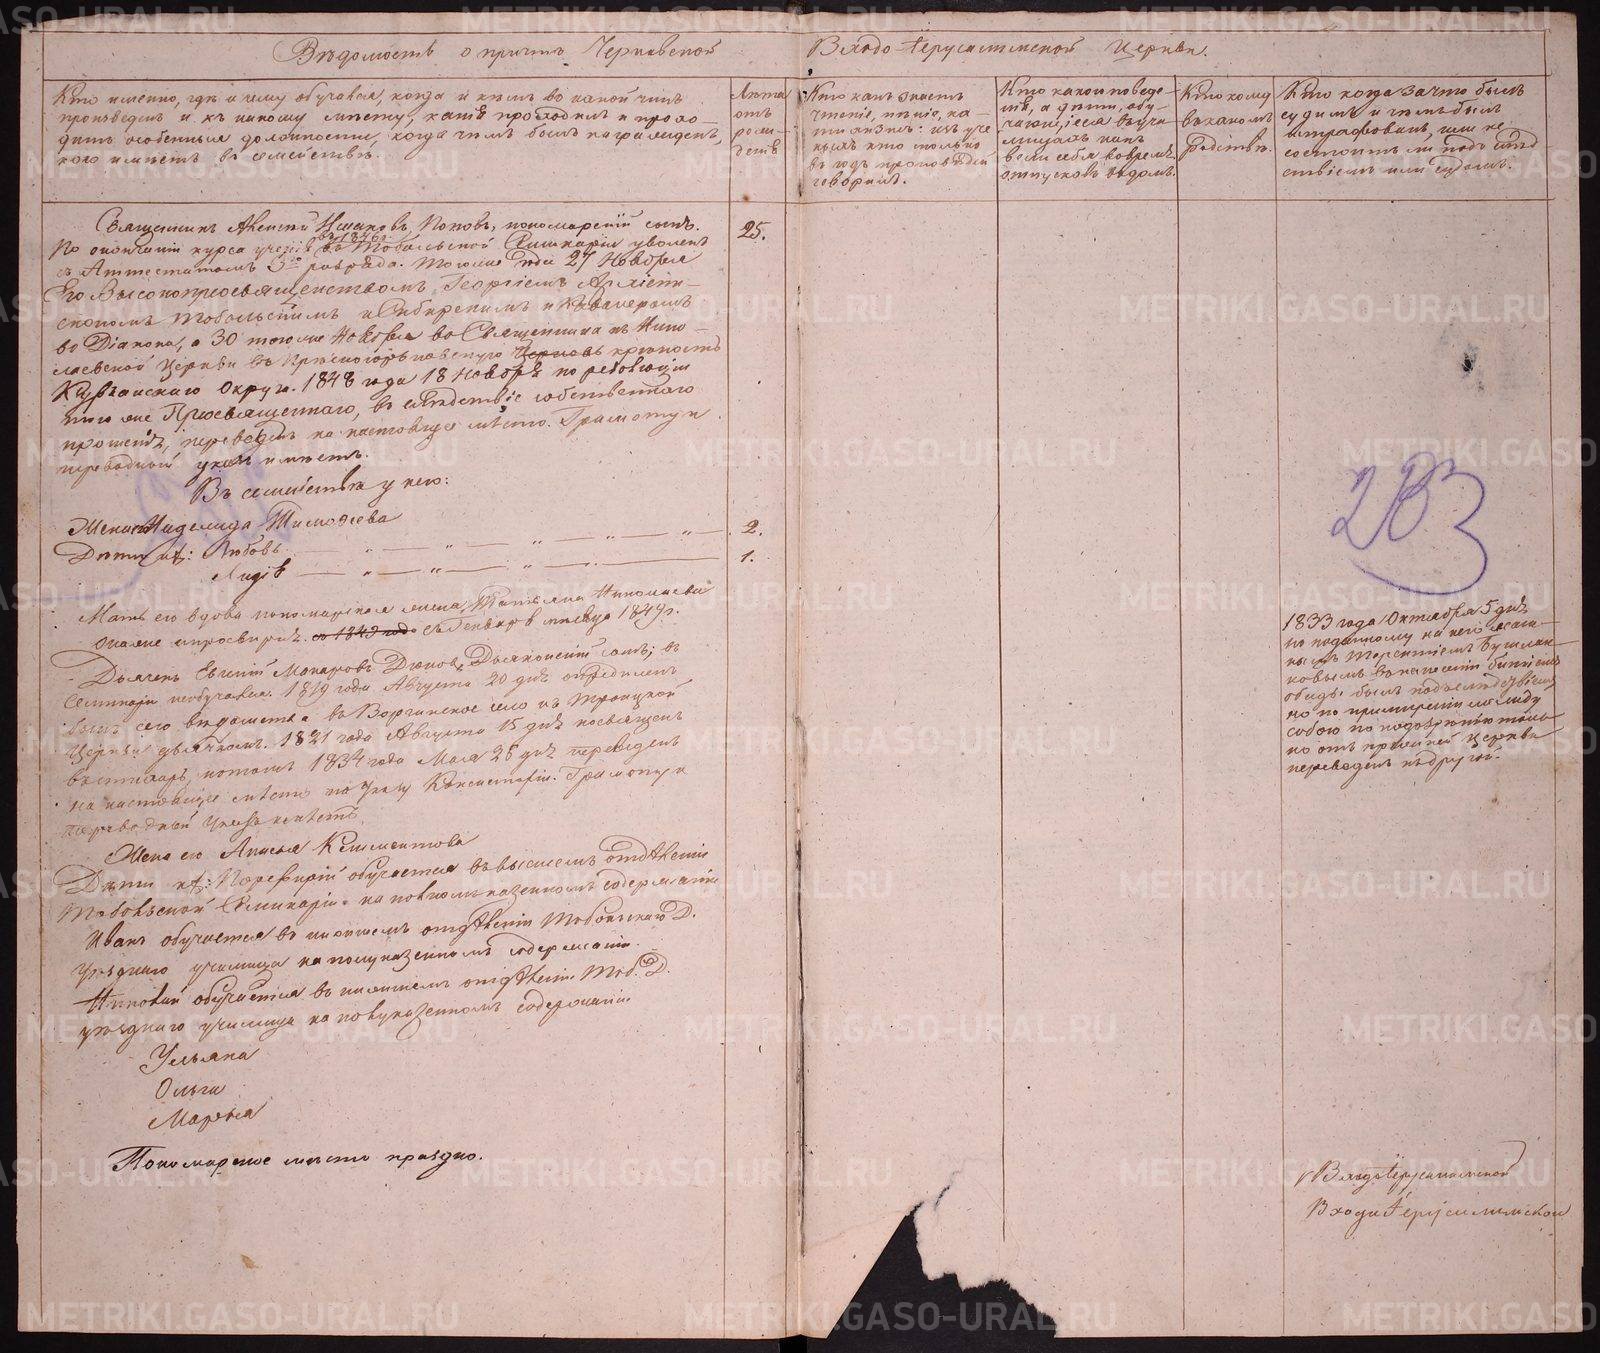 Вѣдомость о причтѣ Чернавской Входо-Іерусалимской Церкви.
Кто именно, гдѣ и чему обучался, когда и кѣмъ во какой чинъ
произведенъ и къ какому мѣсту, какія проходилъ и прохо-
дитъ особенныя должности, когда чѣмъ былъ награжденъ,
кого имѣетъ въ семействѣ.
Лѣта
отъ
рож-
денія
Кто какъ знаетъ
чтеніе, пѣніе, ка-
тихизисъ: изъ уче
ныхъ кто сколько
въ годъ проповѣдей
говорилъ.
Кто какого поведе-
нія, а дѣти, обу-
чающіеся въ учи-
лищахъ какъ
вели себя во время
отпусковъ въ домъ.
Кто кому
въ какомъ
родствѣ.
Кто когда за что былъ
судимъ и чѣмъ былъ
штрафованъ, или не
состоитъ ли подъ слѣд
ствіемъ или судомъ.
Священникъ Алексѣй Исааковъ Поповъ, пономарскій сынъ.
По окончаніи курса ученія въ 1846 г. въ Тобольской Семинаріи уволенъ
съ Аттестатомъ 3го разряда. Того же года 27 Ноября
Его Высокопреосвященствомъ Георгіемъ Архіепи-
скопомъ Тобольскимъ и Сибирскимъ и Кавалеромъ
во Діакона, а 30 того же Ноября во Священника къ Нико-
лаевской Церкви въ Прѣсногорьковскую Церковь крѣпость
Курганскаго Округа. 1848 года 18 Ноября по резолюціи
того же Преосвященнаго, въ слѣдствіе собственнаго
прошенія, переведенъ на настоящее мѣсто. Грамоту и
переводный указъ имѣетъ.
25.
Въ семействѣ у него:
Жена Надежда Тимофеева
Дѣти ихъ: Любовь 2.
Лидія 1.
Мать его вдова пономарская жена, Татьяна Николаева
она же и просвирня со 1849 года съ Генваря мѣсяца 1849 г.
Дьячекъ Евгеній Макаровъ Дюковъ, Дьяконскій сынъ; въ
Семинаріи необучался. 1819 года Августа 20 дня опредѣленъ
былъ сего вѣдомства въ село къ Троицкой
Церкви дьячкомъ. 1821 года Августа 15 дня посвященъ
въ стихарь, потомъ 1834 года Мая 28 дня переведенъ
на настоящее мѣсто по указу Консисторіи. Грамоту и
переводный указъ имѣетъ.
Жена его Анисья Климентова
Дѣти ихъ: Порфирій обучается въ высшемъ отдѣленіи
Тобольской Семинаріи на полномъ казенномъ содержаніи
Иванъ обучается въ низшемъ отдѣленіи Тобольскаго Д.
уѣзднаго училища на полуказенномъ содержаніи.
обучается въ низшемъ отдѣленіи Тоб. Д.
уѣзднаго училища на полуказенномъ содержаніи
Ульяна
Ольга
Марѳа
Пономарское мѣсто праздно.
283
1833 года Октября 5 дня
по поданному на него
въ нанесеніи
обиды былъ подъ слѣдствіемъ
но по примиреніи между
собою по подозрѣнію толь-
ко отъ прежней Церкви
переведенъ къ другой.
Входоіерусалимской
Входо Іерусалимской
METRIKI.GASO-URAL.RU